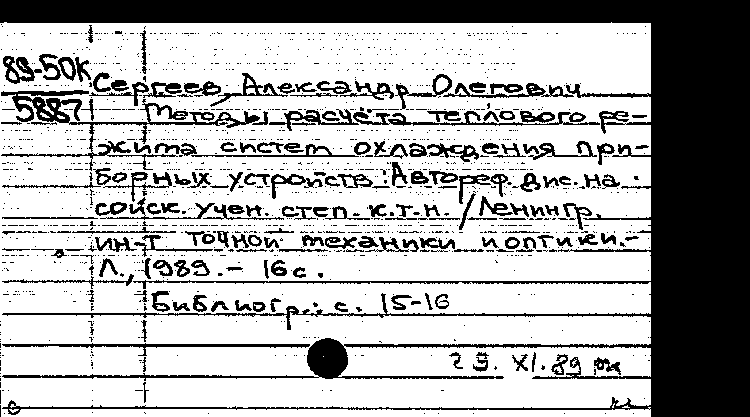 89-50К
5887
Сергеев, Александр Олегович
Методы расчёта теплового ре-
жима систем охлаждения при-
борных устройств: Автореф. дис. на
соиск. учен. степ. к.т.н. / Ленингр.
ин-т точной механики и оптики.-
Л., 1989. - 16 с.
Библиогр.: с. 15-16
29. XI. 89